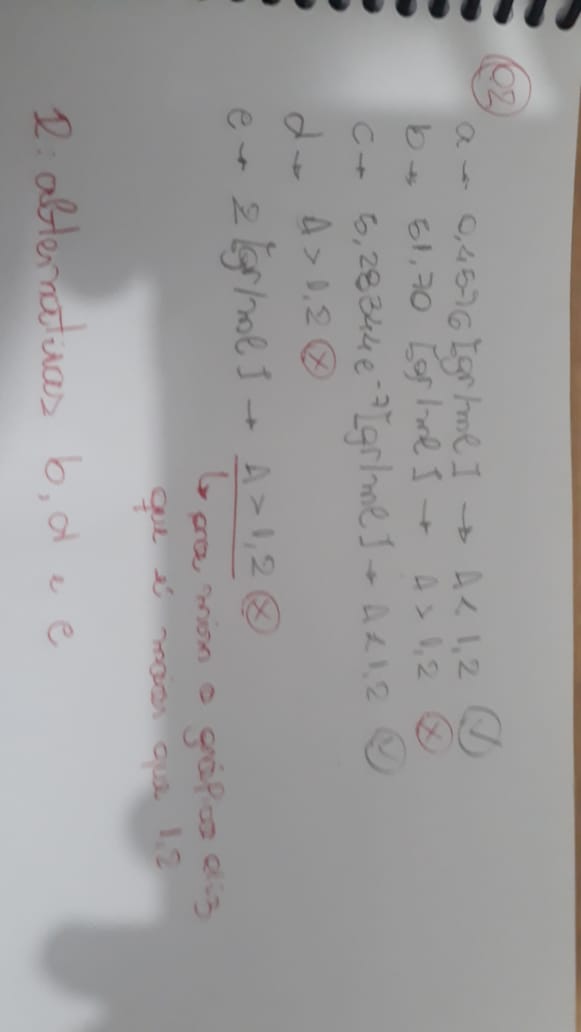 02
a → 0,4576 [gr/ml] → A < 1,2 ✓
b → 51,70 [gr/ml] → A > 1,2 ⊗
c → 5,28344e⁻⁷ [gr/ml] → A < 1,2 ✓
d → A > 1,2 ⊗
e → 2 [gr/ml] → A > 1,2 ⊗
↳ pra mim o gráfico diz
que é maior que 1,2
R: alternativas b, d e e